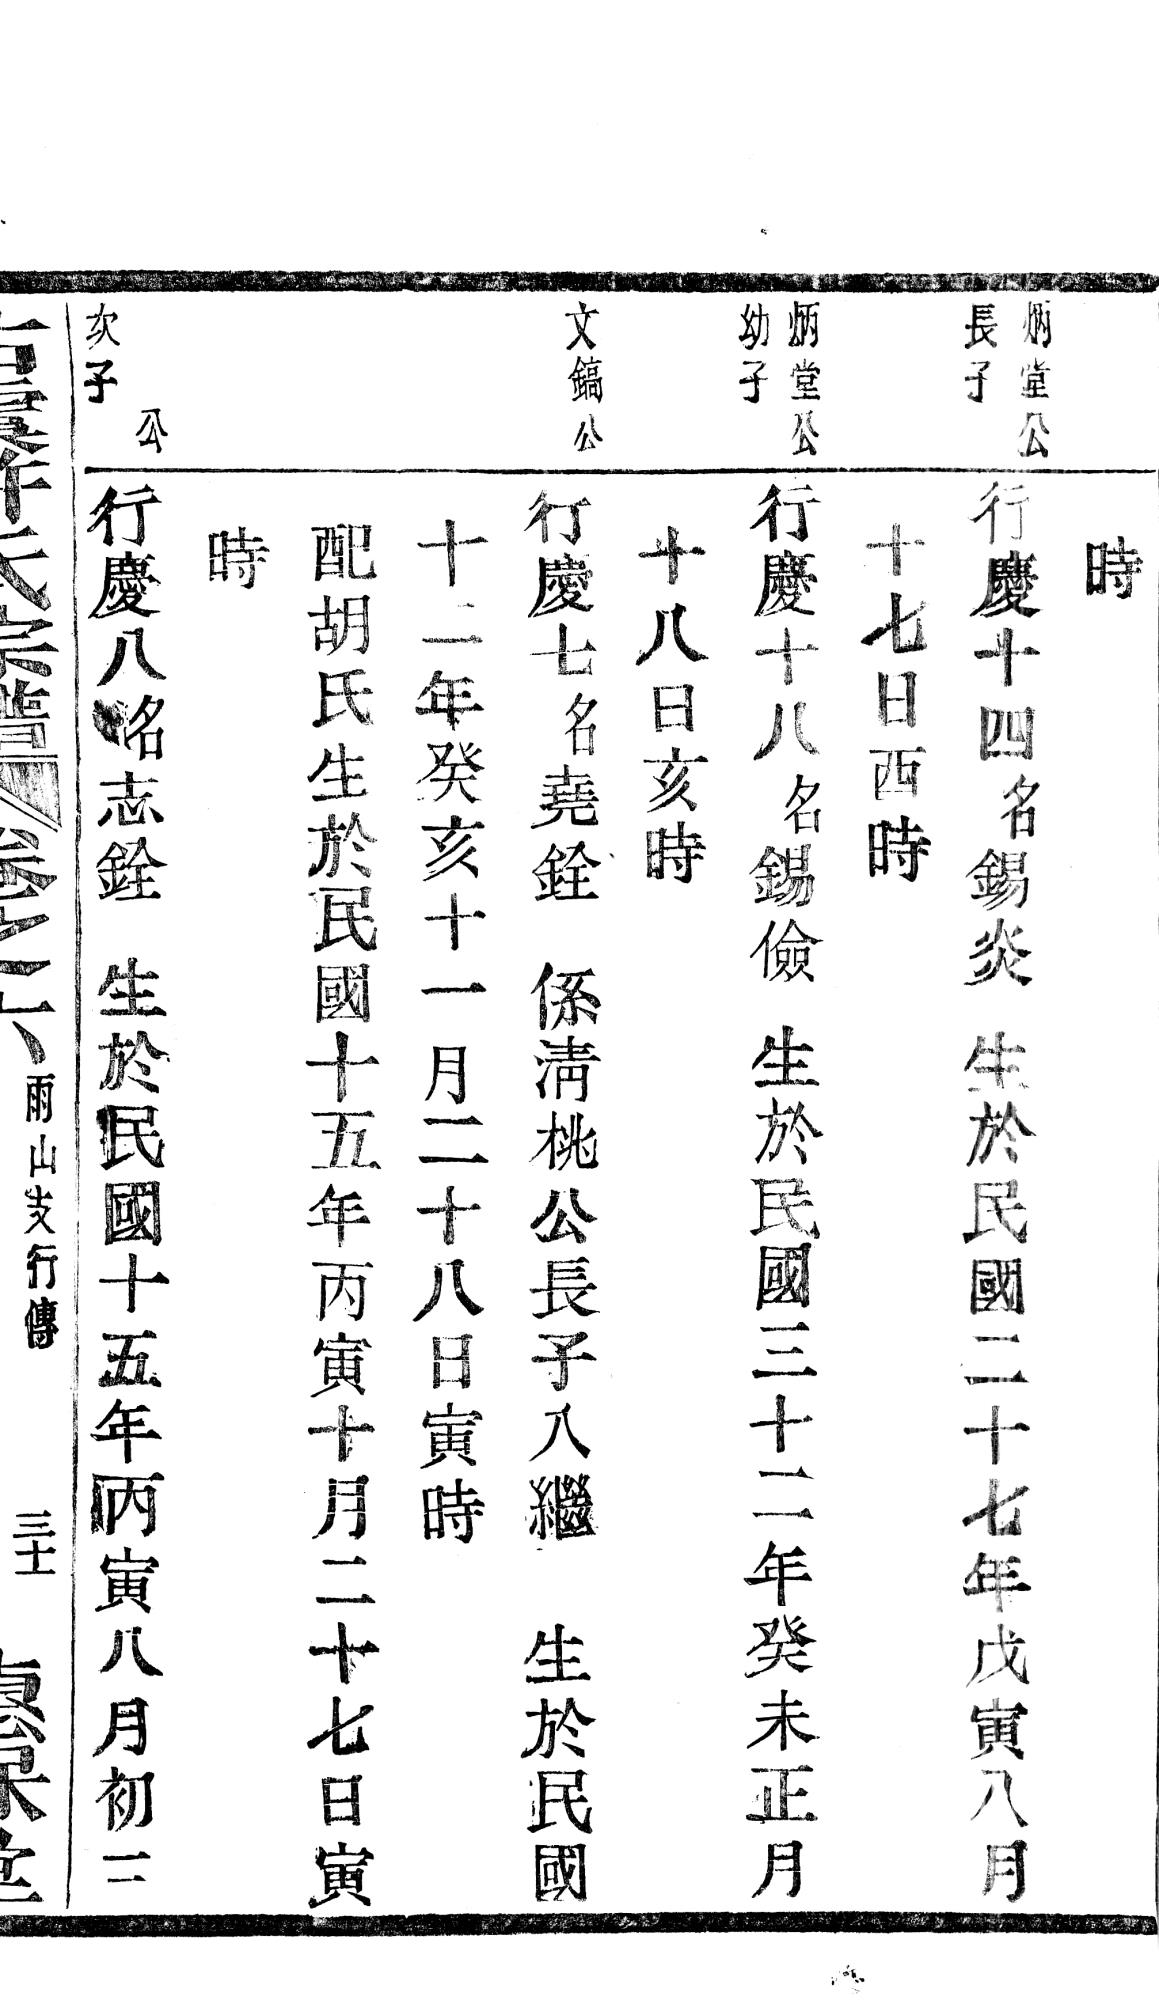 時
炳堂公
長子
行慶十四名錫炎 生於民國二十七年戊寅八月
十七日酉時
炳堂公
幼子
行慶十八名錫儉 生於民國三十二年癸未正月
十八日亥時
文鎬公
行慶七名堯銓 係淸桃公長子入繼 生於民國
十二年癸亥十一月二十八日寅時
配胡氏生於民國十五年丙寅十月二十七日寅
時
公
次子
行慶八名志銓 生於民國十五年丙寅八月初二
氏宗譜 卷之六 雨山支行傳 三十 惠保堂